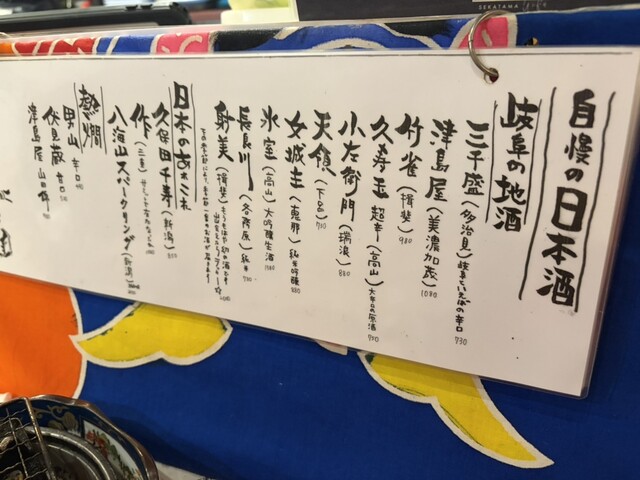 自慢の日本酒
岐阜の地酒
三千盛(多治見)岐阜といえばの辛口 730
津島屋(美濃加茂) 1080
竹雀(揖斐) 980
久寿玉 超辛(高山)大辛口の原酒
小左衛門(瑞浪) 880
天領(下呂) 710
女城主(恵那)純米吟醸 880
氷室(高山)大吟醸生酒 1080
長良川(各務原)純米 730
射美(揖斐)
日本のあれこれ
久保田千寿(新潟) 850
作(三重)
八海山スパークリング(新潟)
熱燗
男山 辛口
伏見蔵 甘口
津島屋